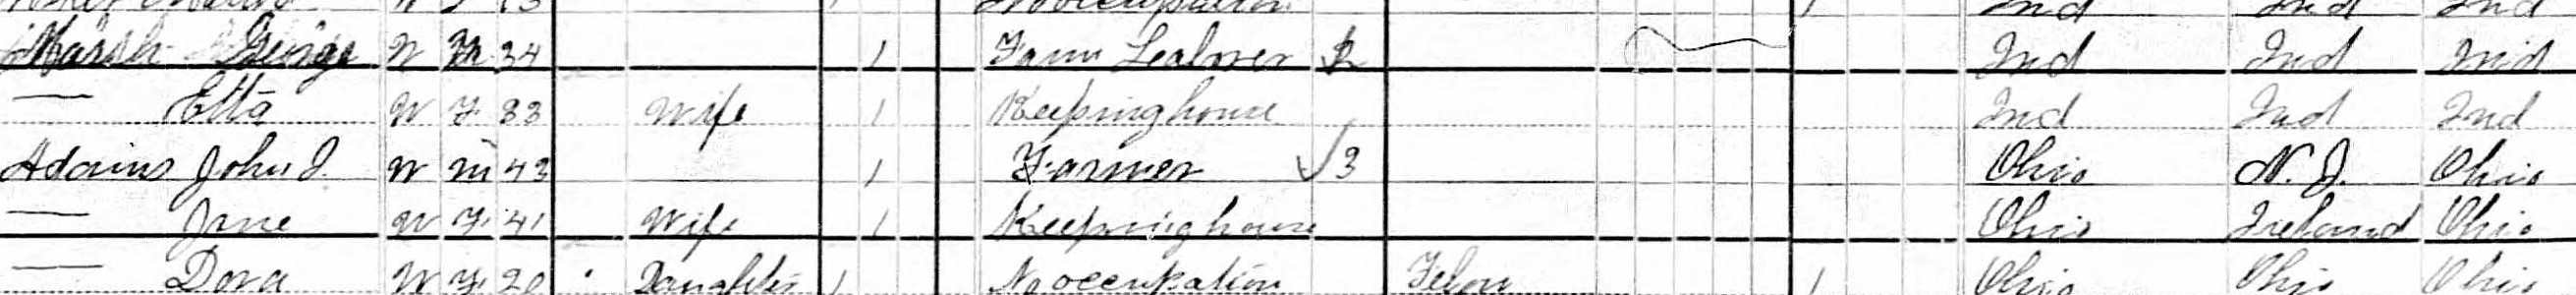 W F 13 1 No occupation 1 Ind Ind Ind
Marsh George W M 34 1 Farm Leabrer 2 Ind Ind Ind
— Etta W F 33 Wife 1 Keeping house Ind Ind Ind
Adams John J. W M 43 1 Farmer 3 Ohio N. J. Ohio
— Jane W F 41 Wife 1 Keeping house Ohio Ireland Ohio
— Dora W F 20 Daughter 1 No occupation Felon 1 Ohio Ohio Ohio